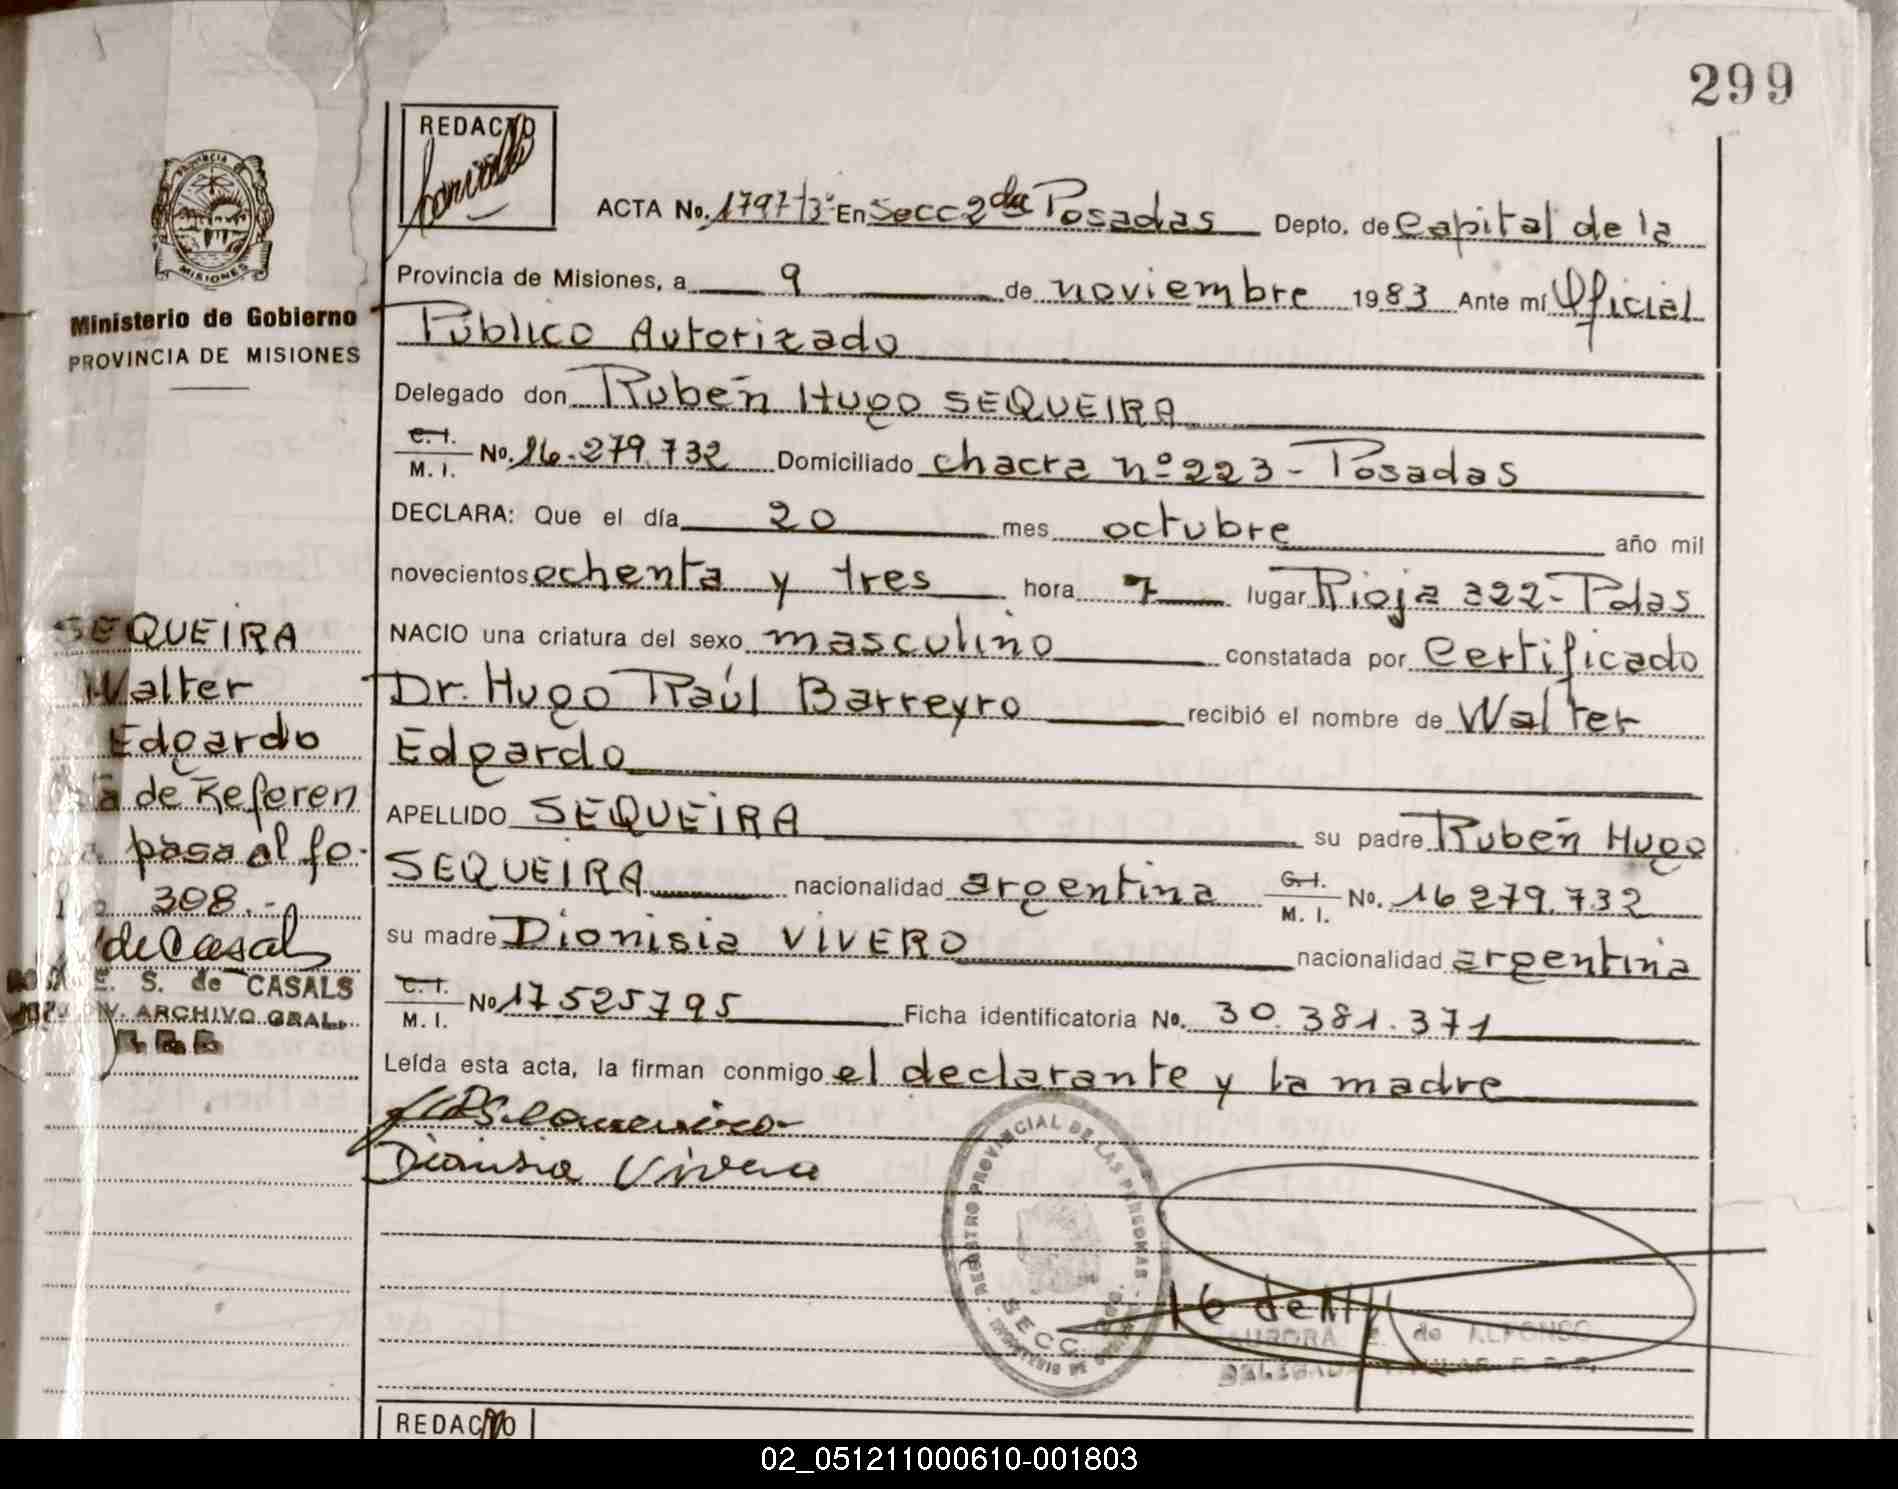 299
REDACTO
PROVINCIA DE
MISIONES
Ministerio de Gobierno
PROVINCIA DE MISIONES
ACTA No. 1797 t3º En Secc 2da Posadas Depto. de Capital de la
Provincia de Misiones, a 9 de noviembre 1983 Ante mí Oficial
Público Autorizado
Delegado don Rubén Hugo SEQUEIRA
C. I. / M. I. No. 16.279.732 Domiciliado chacra nº 223 - Posadas
DECLARA: Que el día 20 mes octubre año mil
novecientos ochenta y tres hora 7 lugar Rioja 322 - Pdas
NACIO una criatura del sexo masculino constatada por Certificado
Dr. Hugo Raúl Barreyro recibió el nombre de Walter
Edgardo
APELLIDO SEQUEIRA su padre Rubén Hugo
SEQUEIRA nacionalidad argentina C. I. / M. I. No. 16 279.732
su madre Dionisia VIVERO nacionalidad argentina
C. I. / M. I. No 17525795 Ficha identificatoria No. 30.381.371
Leída esta acta, la firman conmigo el declarante y la madre
Dionisia Vivero
SEQUEIRA
Walter
Edgardo
de Referen
pasa al fo.
308.-
de Casals
E. S. de CASALS
DIV. ARCHIVO GRAL.
REGISTRO PROVINCIAL DE LAS PERSONAS
SECC.
AURORA E. de ALFONSO
DELEGADA TITULAR R. P. P.
REDACTO
02_051211000610-001803